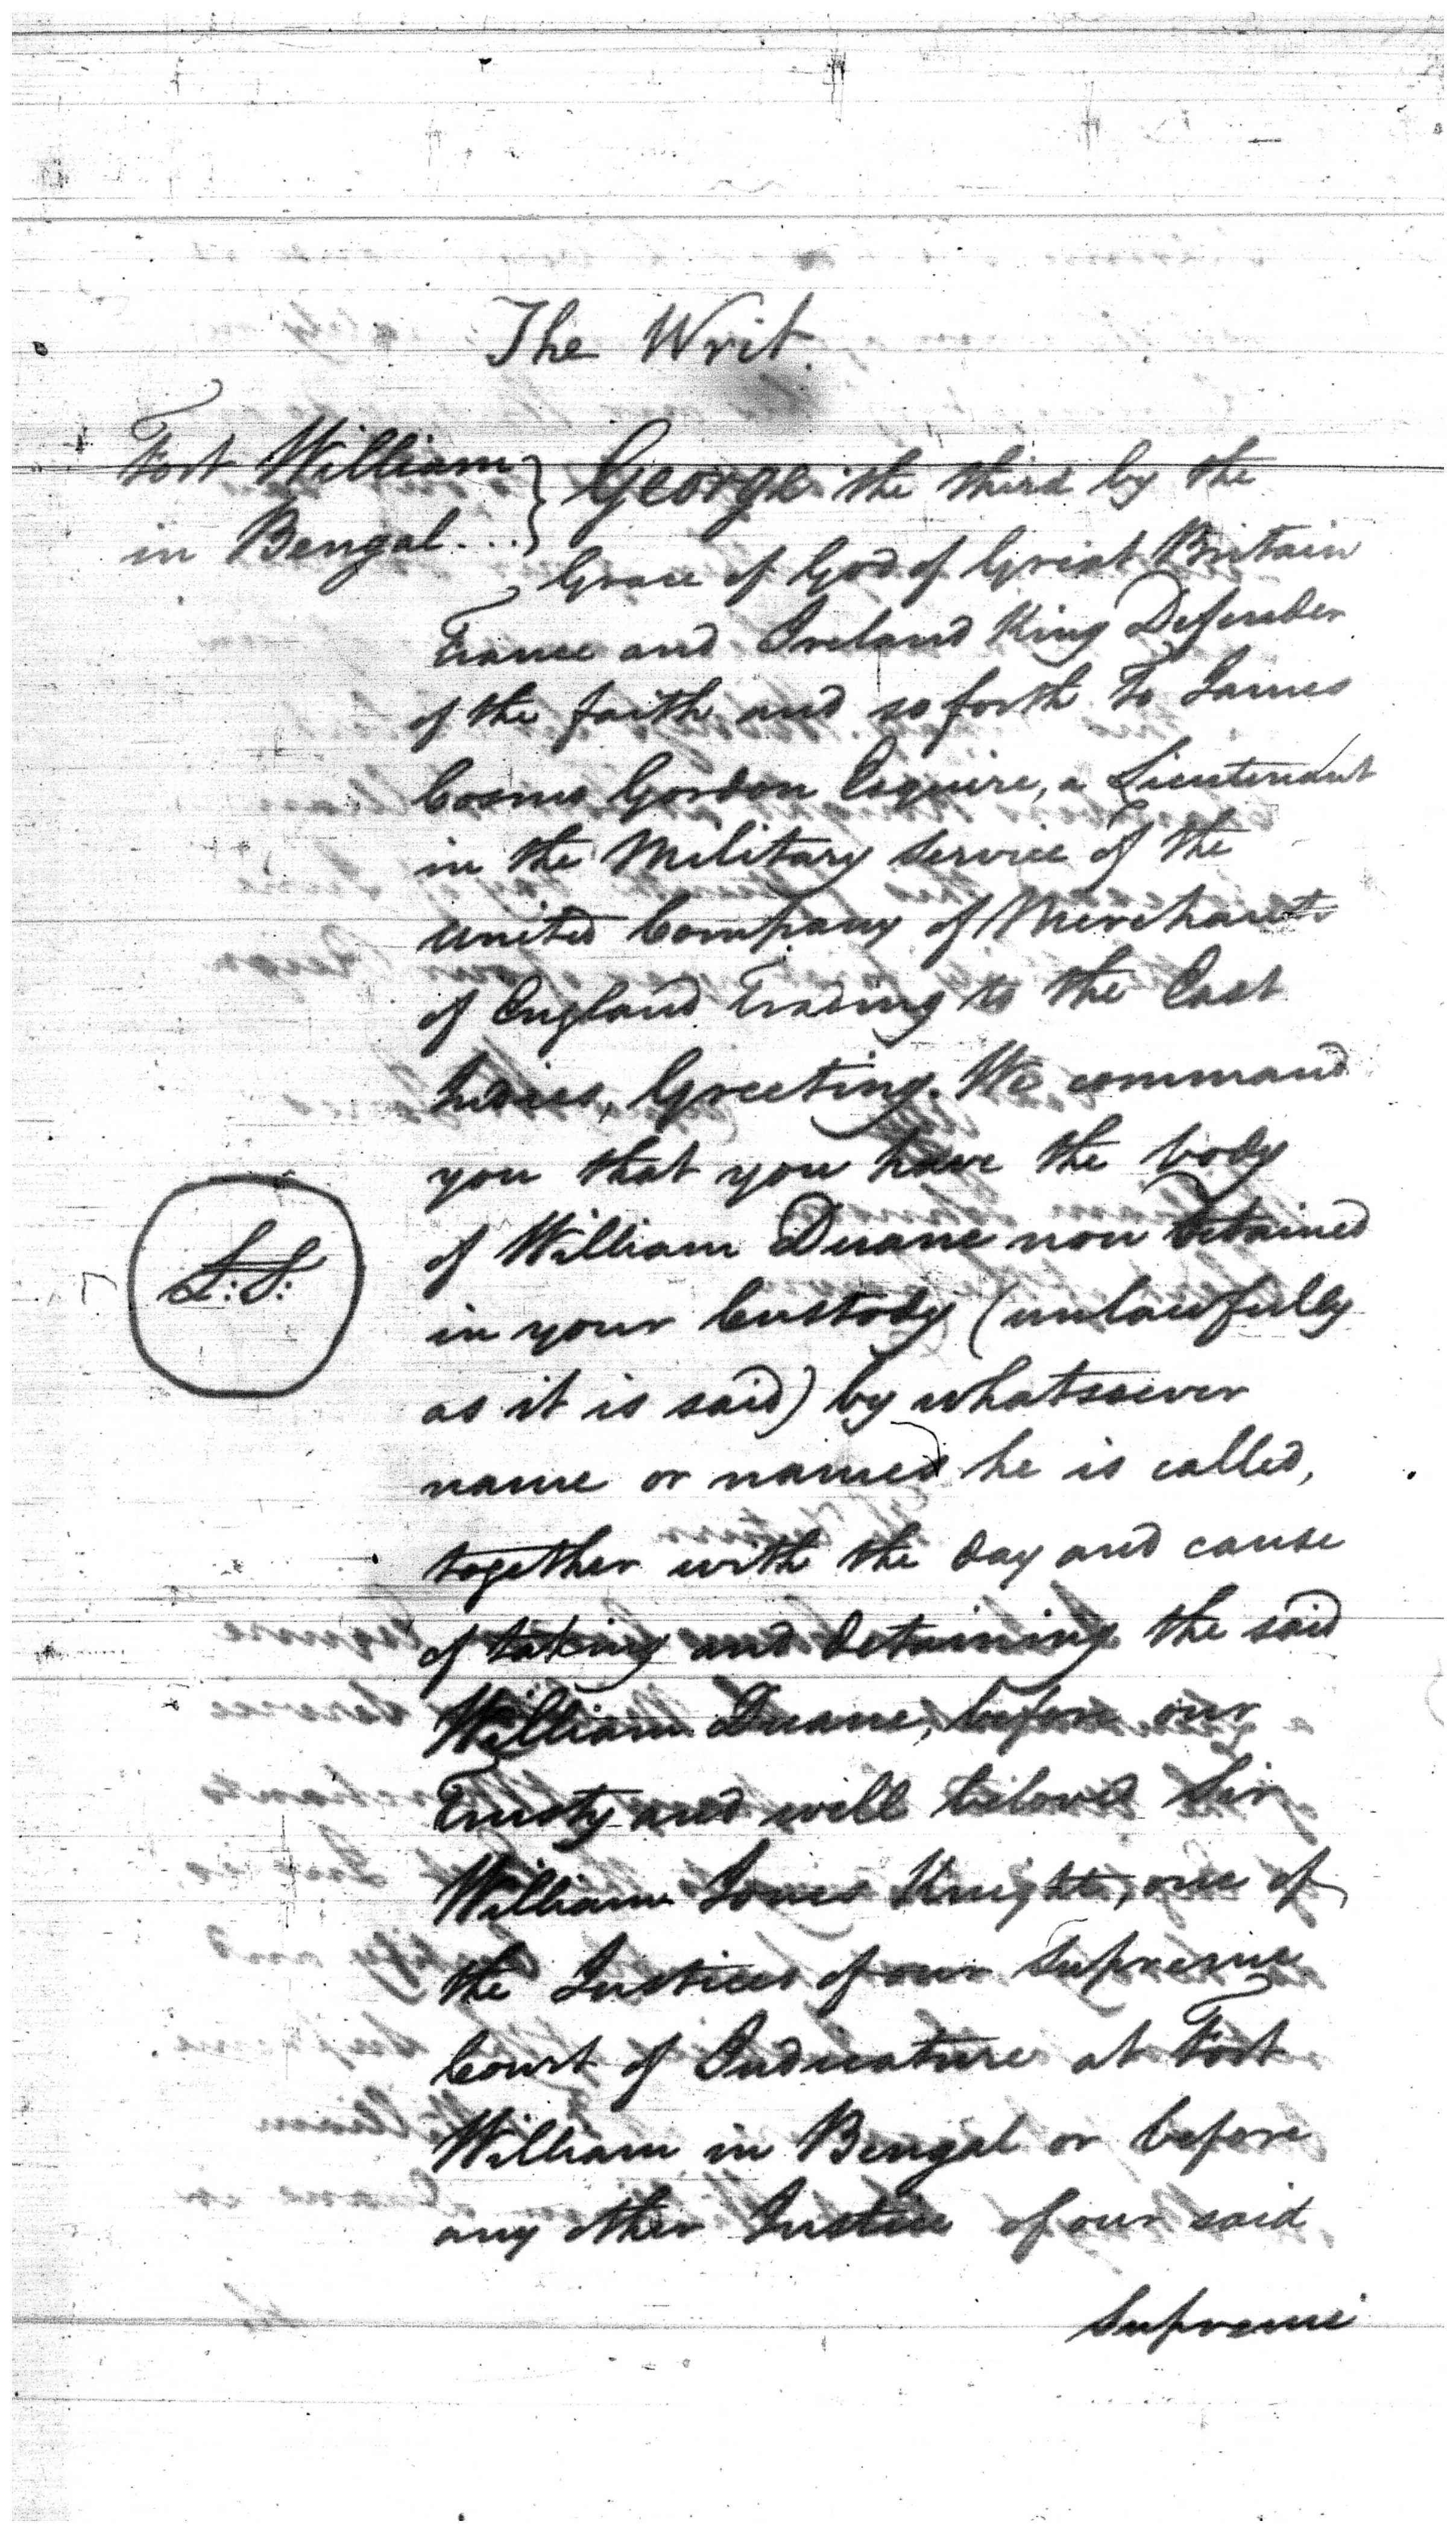 The Writ.
Fort William } George the third by the
in Bengal...
Grace of God of Great Britain
France and Ireland King Defender
of the faith and so forth To James
Cosmo Gordon Esquire, a Lieutenant
in the Military Service of the
United Company of Merchants
of England Trading to the East
Indies, Greeting. We command
you that you have the body
of William Duane now detained
L.S.
in your Custody (unlawfully
as it is said) by whatsoever
name or names he is called,
together with the day and cause
of taking and detaining the said
William Duane, before our
Trusty and well beloved Sir
William Jones Knight, one of
the Justices of our Supreme
Court of Judicature at Fort
William in Bengal or before
any other Justice of our said
Supreme